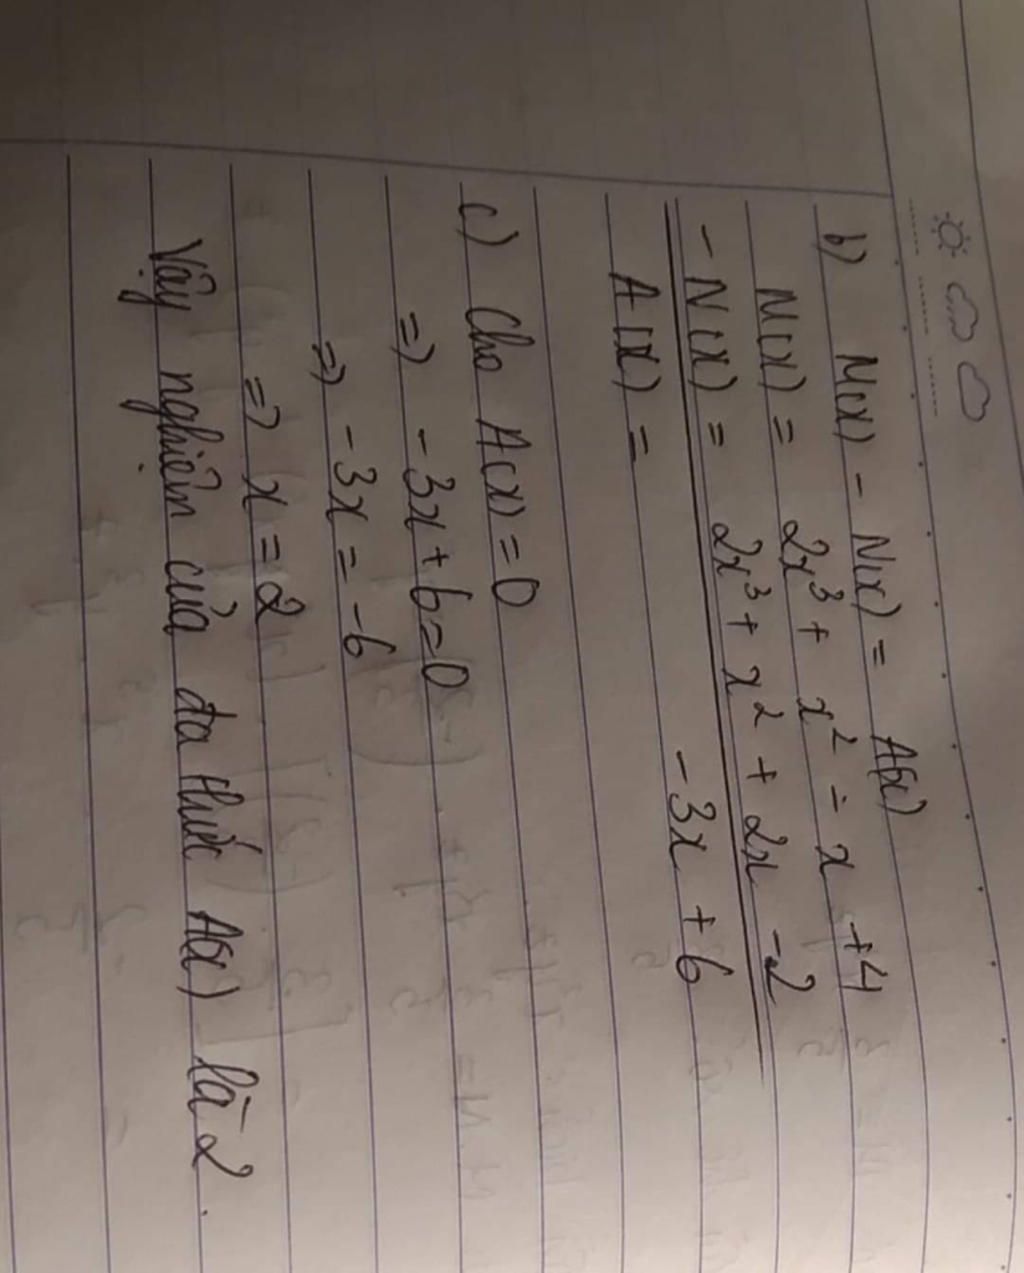 b) M(x) - N(x) = A(x)
M(x) = 2x³ + x² - x + 4
- N(x) = 2x³ + x² + 2x - 2
A(x) = - 3x + 6
c) Cho A(x) = 0
=) - 3x + 6 = 0
=) - 3x = - 6
=) x = 2
Vậy nghiệm của đa thức A(x) là 2.